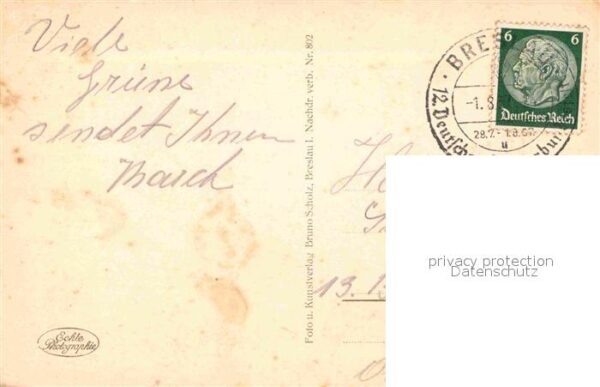 Viele
Grüsse
sendet Ihnen
Foto u. Kunstverlag Bruno Scholz, Breslau I. Nachdr. verb. Nr. 802
Echte
Photographie
BRESLAU
-1.8
28.7.-1.8.
12. Deutsches
6 6
Deutsches Reich
privacy protection
Datenschutz
13.